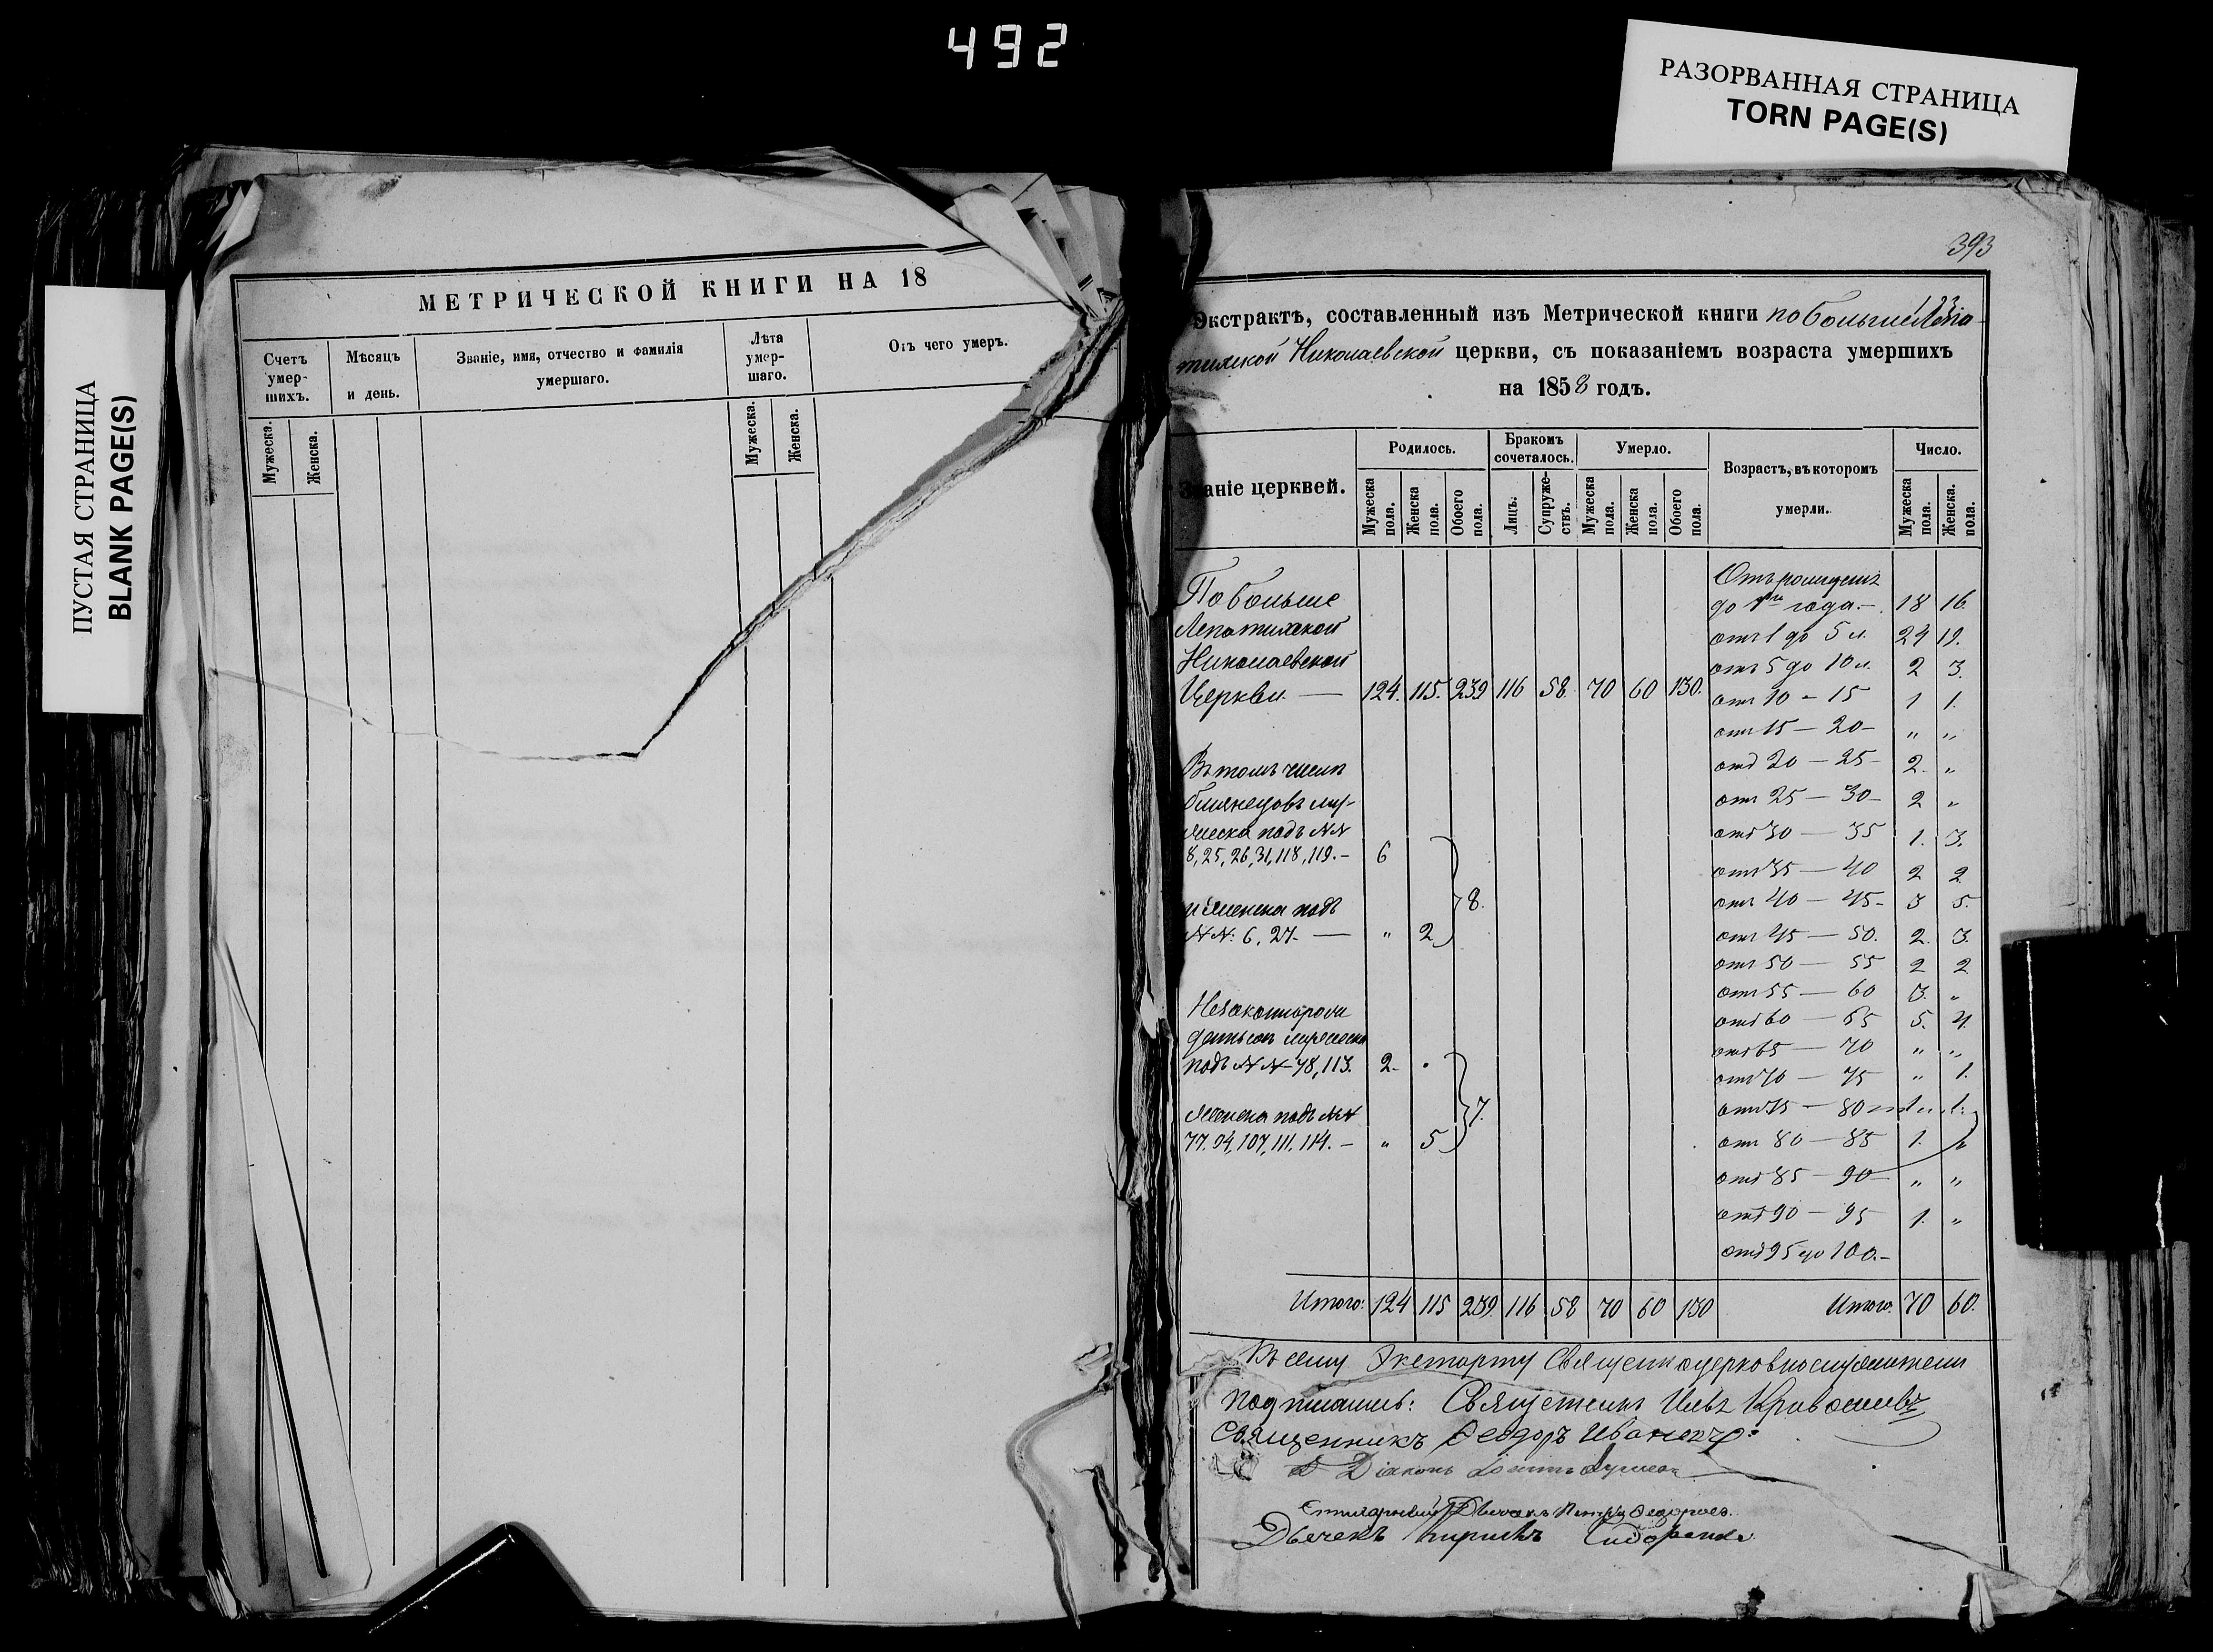 492
РАЗОРВАННАЯ СТРАНИЦА
TORN PAGE(S)
ПУСТАЯ СТРАНИЦА
BLANK PAGE(S)
МЕТРИЧЕСКОЙ КНИГИ НА 18
Счетъ умер-шихъ.
Мѣсяцъ и день.
Званіе, имя, отчество и фамилія умершаго.
Лѣта умер-шаго.
Отъ чего умеръ.
Мужеска. Женска. Мужеска. Женска.
393
Экстрактъ, составленный изъ Метрической книги по Больше Лепа-
тихской Николаевской церкви, съ показаніемъ возраста умершихъ
на 1858 годъ.
Званіе церквей.
Родилось.
Бракомъ сочеталось.
Умерло.
Возрастъ, въ которомъ умерли.
Число.
Мужеска пола. Женска пола. Обоего пола. Лицъ. Супруже-ствъ. Мужеска пола. Женска пола. Обоего пола. Мужеска пола. Женска. пола.
По больше
Лепатихской
Николаевской
Церкви — 124. 115. 239 116 58. 70 60 130.
Въ томъ числѣ
близнецовъ му-
жеска подъ №№
8, 25, 26, 31, 118, 119. — 6
и женска подъ
№№: 6, 27. — " 2 } 8.
Незаконнорож
подъ №№ 78, 113. 2.
женска подъ №№
77. 94, 107, 111. 114. — " 5 } 7.
до 1го года. — 18 16.
отъ 1 до 5 л. 24 19.
отъ 5 до 10 л. 2 3.
отъ 10 - 15 1 1.
отъ 15 — 20 — " "
отъ 20 — 25 — 2. "
отъ 25 — 30 — 2 "
отъ 30 — 35 1. 3.
отъ 35 — 40 2 2
отъ 40 — 45 — 3 5.
отъ 45 — 50. 2. 3.
отъ 50 — 55 2 2
отъ 55 — 60 3. "
отъ 60 — 65 5. 4.
отъ 65 — 70 " "
отъ 70 — 75 " 1.
отъ 75 — 80
отъ 80 — 85 1. "
отъ 85 — 90 " "
отъ 90 — 95 1. "
отъ 95 до 100. —
Итого: 124 115 239. 116 58 70 60 130 Итого: 70 60.
Къ сему Экстракту Священноцерковнослужители
подписались:
Священникъ Феодоръ
Діаконъ
Дьячекъ